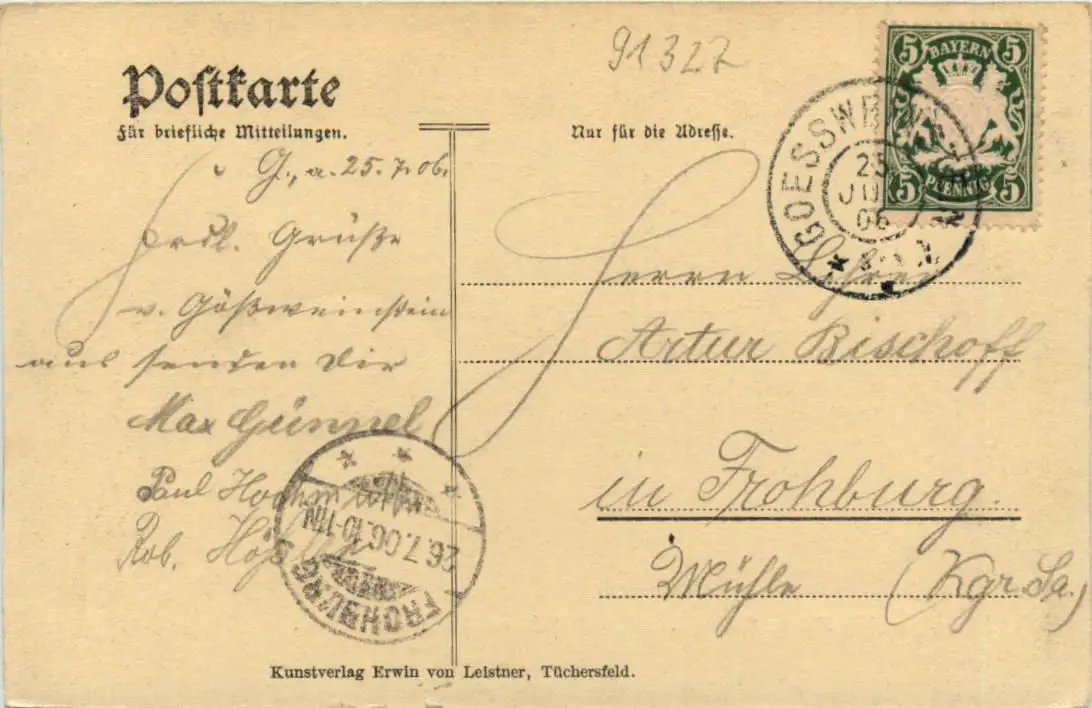 91327
Postkarte
Für briefliche Mitteilungen.
Nur für die Adresse.
BAYERN
5 5
5 5
PFENNIG
GOESSWEINSTEIN
25
JUL
06
G., a. 25.7.06.
Frdl. Grüße
v. Gößweinstein
aus senden Dir
Max Günnel
Paul
Rob.
Herrn
Artur Bischoff
in Frohburg.
Mühle (Kgr. Sa.)
FROHBURG
26.7.06.10-11N
Kunstverlag Erwin von Leistner, Tüchersfeld.